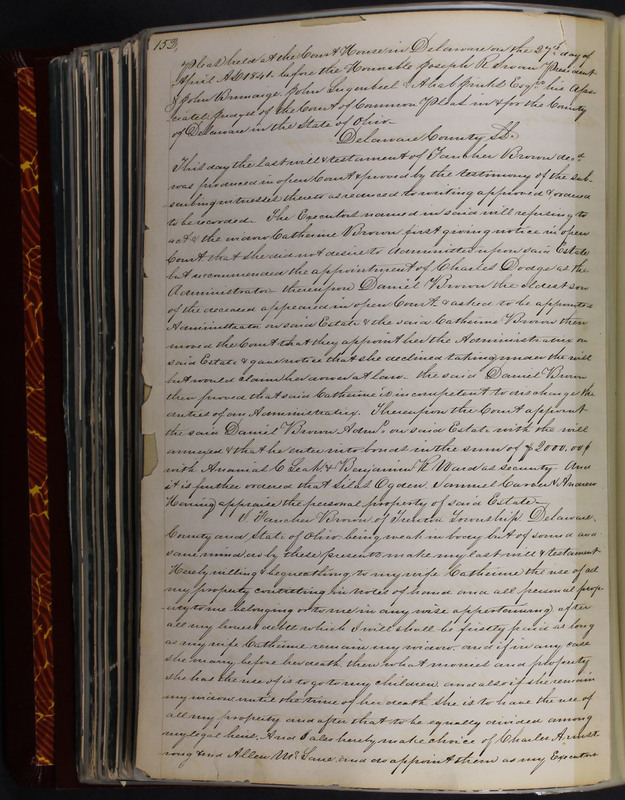 153,
Pleas held at the Court House in Delaware on the 27th day of
April AD 1841. before the Honorable Joseph R Swan President
& John Brundige John Lugenbeel & Ahab Jinks Esqrs his Asso-
ciates judges of the Court of Common Pleas in & for the County
of Delaware in the State of Ohio
Delaware County SS.
This day the last will & testament of Fancher Brown decd
was produced in open Court & proved by the testimony of the sub-
scribing witnesses thereto as reduced to writing approved & ordered
to be recorded. The Executors named in said will refusing to
act & the widow Catherine Brown first giving notice in open
Court that she did not desire to administer upon said Estate
but recommended the appointment of Charles Dodge as the
Administrator thereupon Daniel Brown the oldest son
of the deceased appeared in open Court & asked to be appointed
Administrator on said Estate & the said Catherine Brown then
moved the Court that they appoint her the Administratrix on
said Estate & gave notice that she declined taking under the will
but would claim her dower at law. the said Daniel Brown
then proved that said Catherine is incompetent to discharge the
duties of an Administratrix. Thereupon the Court appoint
the said Daniel Brown Admr. on said Estate with the will
annexed & that he enter into bonds in the sum of $2000.00
with Ananias C Leak & Benjamin W Ward as security. And
it is further ordered that Silas Ogden, Samuel Carver & Andrew
Having appraise the personal property of said Estate
I Fancher Brown of Trenton Township Delaware
County and State of Ohio being weak in body but of sound and
sane mind, do by these presents make my last will & testament
Hereby willing & bequeathing to my wife Catherine the use of all
my property contsisting in notes of hand and all personal prop-
erty to me belonging or to me in any wise appertaining after
all my honest debts which I will shall be firstly paid as long
as my wife Catherine remain my widow. and if in any case
she marry before her death then what monies and property
she has the use of is to go to my children and also if she remain
my widow until the time of her death she is to have the use of
all my property and after that to be equally divided among
my legal heirs. And I also hereby make choice of Charles Armst-
rong and Allen Mc Lane and do appoint them as my Executors